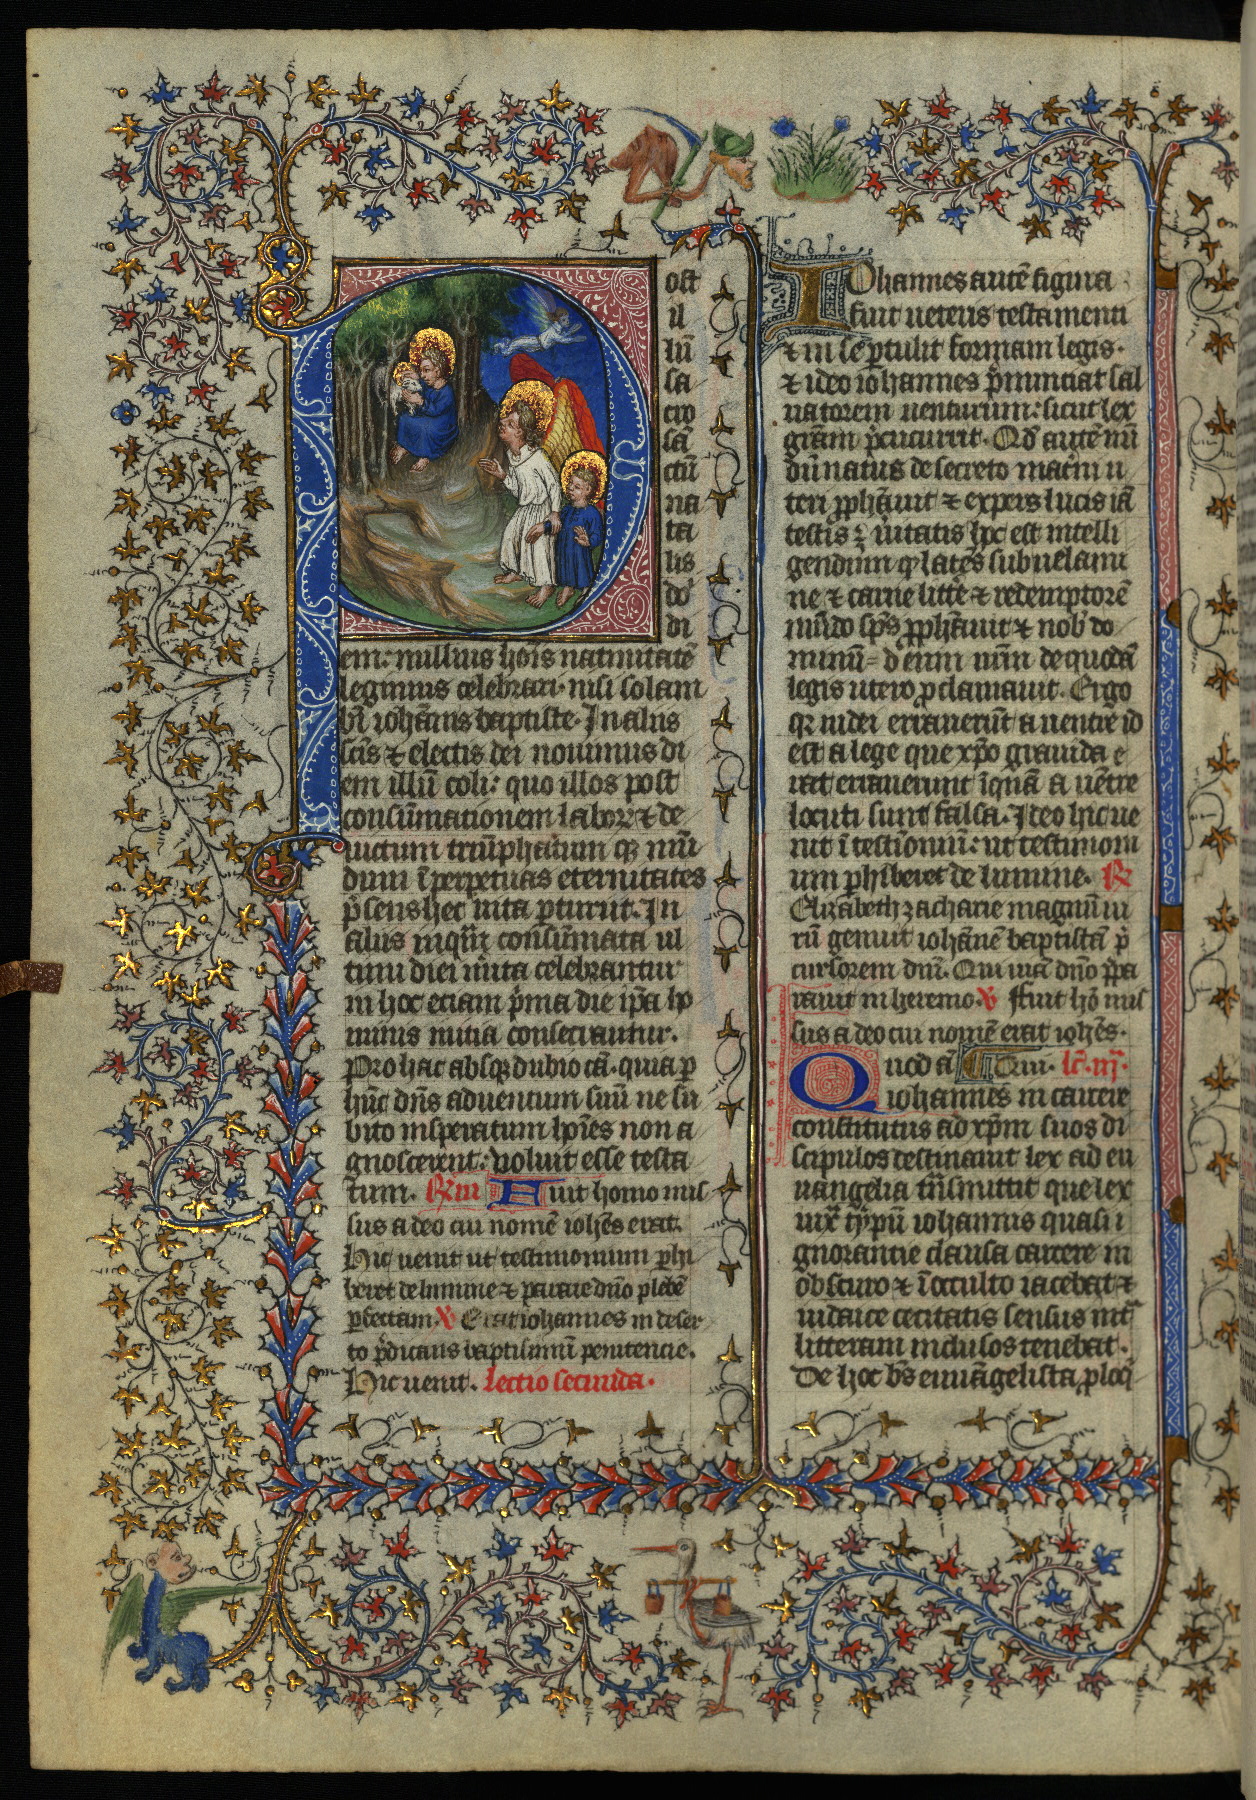 Post
il
lū
sa
cro
scā
ctū
na
ta
lis
dn̄i
di
em: nullius hoīs natiuitatē
legimus celebrari· nisi solam
bt̄i ioh̄annis baptiste· In aliis
scīs ⁊ electis dei nouimus di
em illū coli: quo illos post
consūmationem labor⁊ ⁊ de
uictum triūphatum q̄ mū
dum ī perpetuas eternitates
p̄sens hec uita pturiit· In
aliis
consūmata ul
timi diei m̄ita celebrantur
in hoc eciam p̄ma die ip̄a ho
minis initia consecrantur·
Pro hac absq̄ dubio cā· quia p
hūc dn̄s aduentum suū ne su
bito insperatum hoīes non a
gnoscerent: voluit esse testa
tum. R̄m Fuit homo mis
sus a deo cui nomē ioh̄es erat·
Hic uenit ut testimonium phi
beret de lumine ⁊ parare dn̄o plebē
pfectam V Erat iohannes in deser
to p̄dicans baptismū penitencie·
Hic uenit· Lectio secunda·
Iohannes autē figura
fuit ueteris testamenti
⁊ in se ptulit formam legis·
⁊ ideo iohannes p̄nunciat sal
uatorem uenturum: sicut lex
grām p̄cucurrit· Qd̄ autē nū
dū natus de secreto mat̄ni u
teri pph̄auit ⁊ expers lucis iā
testis ē ūitatis hoc est intelli
gendum q̄ latēs sub uelami
ne ⁊ carne litt̄e ⁊ redemptorē
mūdo sp̄s pph̄auit ⁊ nob̄ do
minū= d eum nr̄m de quodā
legis utero pclamauit· Ergo
q̄ iudei errauerūt a uentre id
est a lege que xp̄o grauida e
rat errauerunt īquā a uētre
locuti sunt falsa· Ideo hic ue
nit ī testioniū: ut testimoni
um phiberet de lumine· R̄
Elizabeth zacharie magnū ui
rū genuit ioh̄anē baptistā p̄
cursorem dn̄i· Qui uiā dn̄o p̄pa
rauit in heremo· V Fuit hō mis
sus a deo cui nomē erat ioh̄es·
Quod ā Qui· lc̄· iij·
iohannes in carcere
constitutus ad xp̄m suos di
scipulos destinauit lex ad eu
uangelia trn̄smittit que lex
iux̄ typū iohannis quasi i
gnorantie clausa carcere in
obscuro ⁊ ī occulto iacebat ⁊
iudaice cecitatis sensus int̄
litteram inclusos tenebat·
De hoc bt̄s euuāgelista ploq̄